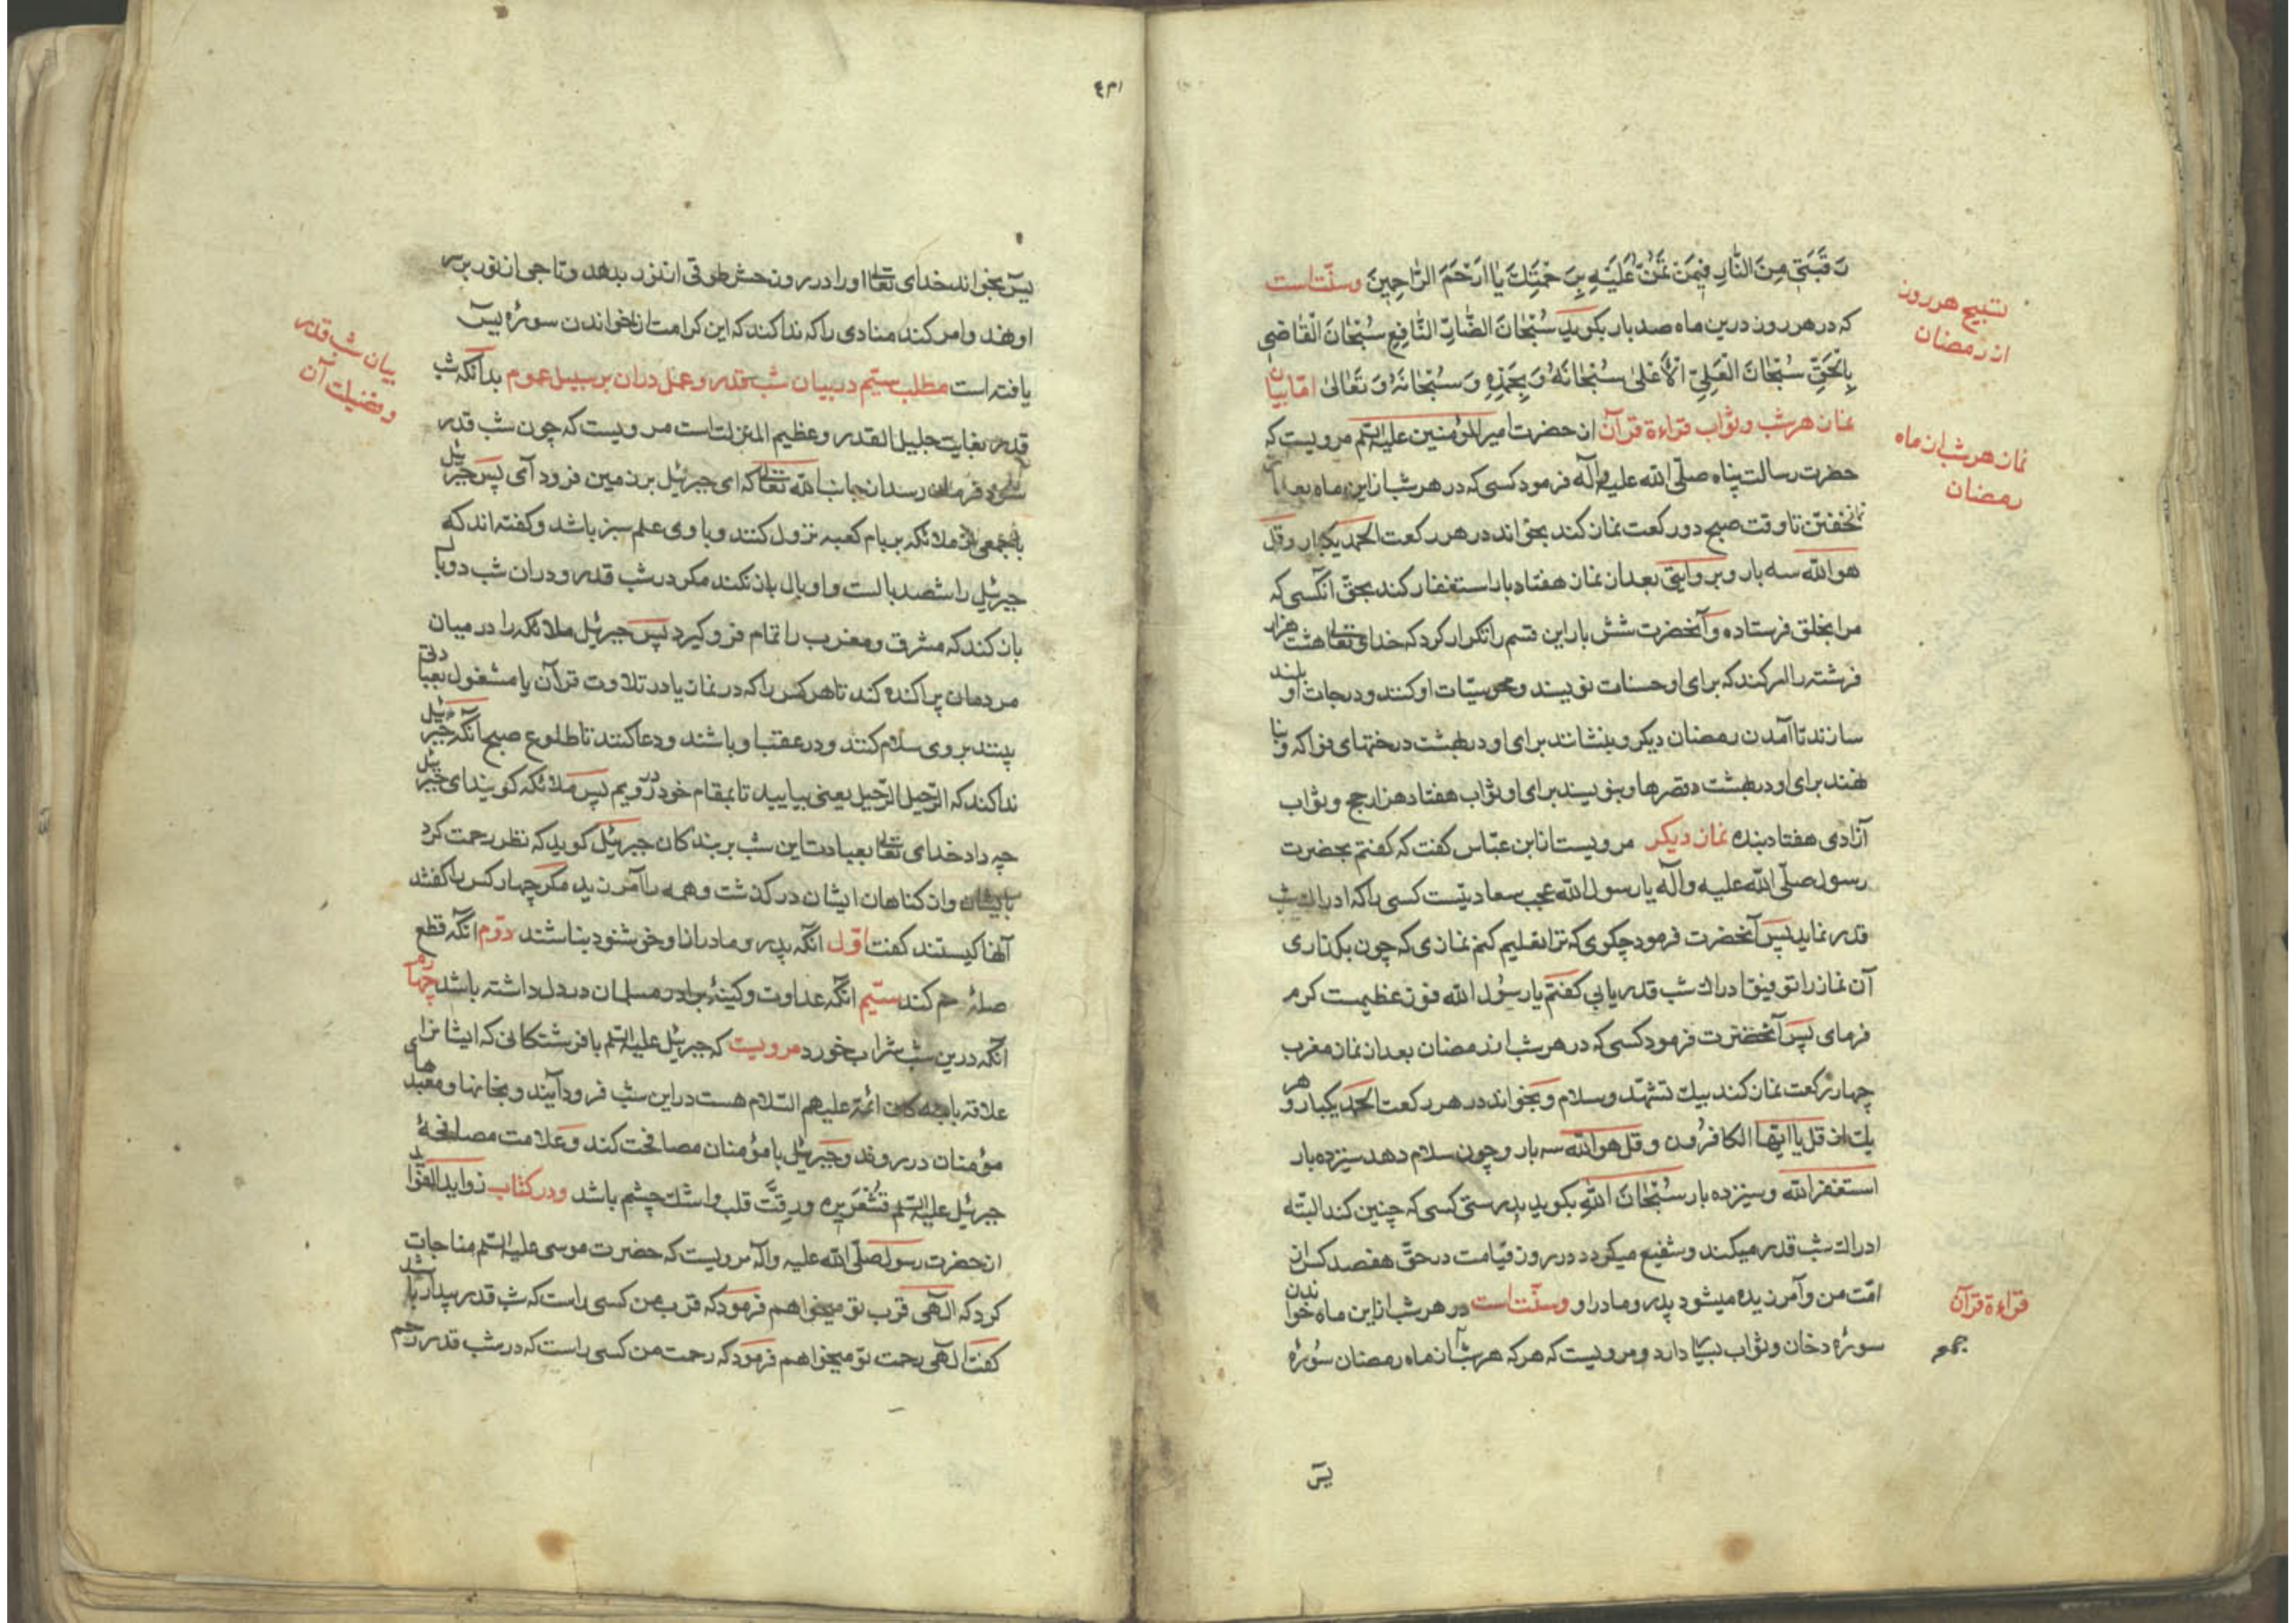 رَقَبَتي مِنَ النّارِ فِيمَنْ تَمُنُّ عَلَيْهِ بِرَحْمَتِكَ يا اَرْحَمَ الرّاحِمِينَ وسنّتاست
تسبیح هر روز
از رمضان
که در هر روز درین ماه صد بار بکوید سُبْحانَ الضّارِّ النّافِعِ سُبْحانَ الْقاضِي
بِالْحَقِّ سُبْحانَ الْعَلِيِّ الْاَعْلىٰ سُبْحانَهُ وَ بِحَمْدِهِ وَ سُبْحانَهُ وَ تَعالىٰ امّا بیان
نماز هر شب وثواب قراءة قرآن از حضرت امیر المؤمنین علیه السّلم مرویست که
نماز هر شب از ماه
رمضان
حضرت رسالت پناه صلّی الله علیه وآله فرمود کسی که در هر شب ازین ماه بعد از
نماز خفتن تا وقت صبح دو رکعت نماز کند بخواند در هر رکعت الحمد یکبار وقل
هو الله سه بار وبروایتی بعد از نماز هفتاد بار استغفار کند بحقّ آنکسی که
مرا بخلق فرستاده وآنحضرت شش بار این قسم را تکرار کرد که خدای تعالی هشت هزار
فرشته را امر کند که برای او حسنات نویسند ومحو سیّات او کنند ودرجات او بلند
سازند تا آمدن رمضان دیکر وبنشانند برای او در بهشت درختهای فواکه وبنا
نهند برای او در بهشت قصرها وبنویسند برای او ثواب هفتاد هزار حج وثواب
آزادی هفتاد بنده نماز دیکر مرویست از ابن عبّاس کفت که کفتم بحضرت
رسول صلّی الله علیه وآله یا رسول الله عجب سعادتیست کسی را که ادراك شب
قدر نماید پس آنحضرت فرمود چکوی که ترا تعلیم کنم نمازی که چون بکذاری
آن نماز را توفیق ادراك شب قدر یابی کفتم یا رسول الله فوز عظیمست کرم
فرمای پس آنحضرت فرمود کسی که در هر شب از رمضان بعد از نماز مغرب
چهار رکعت نماز کند بیك تشهّد وسلام وبخواند در هر رکعت الحمد یکبار وهر
یك از قل یا ایّها الکافرون وقل هو الله سه بار وچون سلام دهد سیزده بار
استغفر الله وسیزده بار سُبْحانَ اللهِ بکوید بدرستی کسی که چنین کند البتّه
ادراك شب قدر میکند وشفیع میکردد در روز قیامت در حقّ هفصد کس از
امّت من وآمرزیده میشود پدر ومادر او وسنّتاست در هر شب از این ماه خواندن
قراءة قرآن
سورۀ دخان وثواب بسیار دارد ومرویست که هر که هر شب از ماه رمضان سُورۀ
یس
یس بخواند خدای تعالی او را در روز حشر طوقی از نور بدهد وتاجی از نور بر سر
او نهند وامر کند منادی را که ندا کند که این کرامت از خواندن سورۀ یس
یافته است مطلب سیّم در بیان شب قدر وعمل در آن بر سبیل عموم بدانکه شب
بیان شب قدر
وفضیلت آن
قدر بغایت جلیل القدر وعظیم المنزلتاست مرویست که چون شب قدر
شود فرمان رسد از جانب الله تعالی که ای جبرئیل بر زمین فرود آی پس جبرئیل
با جمعی از ملائکه بر بام کعبه نزول کنند وبا وی علم سبز باشد وکفته اند که
جبرئیل را ششصد بالست واو بال باز نکند مکر در شب قدر ودر آن شب دو بال
باز کند که مشرق ومغرب را تمام فرو کیرد پس جبرئیل ملائکه را در میان
مردمان پراکنده کند تا هر کس را که در نماز یا در تلاوت قرآن یا مشغول بعبادتی
بینند بر وی سلام کنند ودر عقب او باشند ودعا کنند تا طلوع صبح آنکه جبرئیل
ندا کند که الرّحیل الرّحیل یعنی بیایید تا بمقام خود رویم پس ملائکه کویند ای جبرئیل
چه داد خدای تعالی بعبادت این شب بر بندکان جبرئیل کوید که نظر رحمت کرد
بایشان واز کناهان ایشان در کذشت وهمه را آمرزید مکر چهار کس را کفتند
آنها کیستند کفت اوّل آنکه پدر ومادر از او خوشنود نباشند دوّم آنکه قطع
صلۀ رحم کند سیّم آنکه عداوت وکینۀ برادر مسلمان در دل داشته باشد چهارم
آنکه درین شب شراب خورد مرویست که جبرئیل علیه السّلم با فرشتکانی که ایشانرا
علاقه با ائمّه علیهم السّلام هست در این شب فرود آیند وبخانها ومعبدهای
مؤمنان در روند وجبرئیل با مؤمنان مصافحت کند وعلامت مصافحۀ
جبرئیل علیه السّلم قشعریره ورقّت قلب واشك چشم باشد ودر کتاب زواید الفوائد
از حضرت رسول صلّی الله علیه وآله مرویست که حضرت موسی علیه السّلم مناجات
کرد که الٰهی قرب تو میخواهم فرمود که قرب من کسی راست که شب قدر بیدار باشد
کفت الٰهی رحمت تو میخواهم فرمود که رحمت من کسی راست که در شب قدر رحم